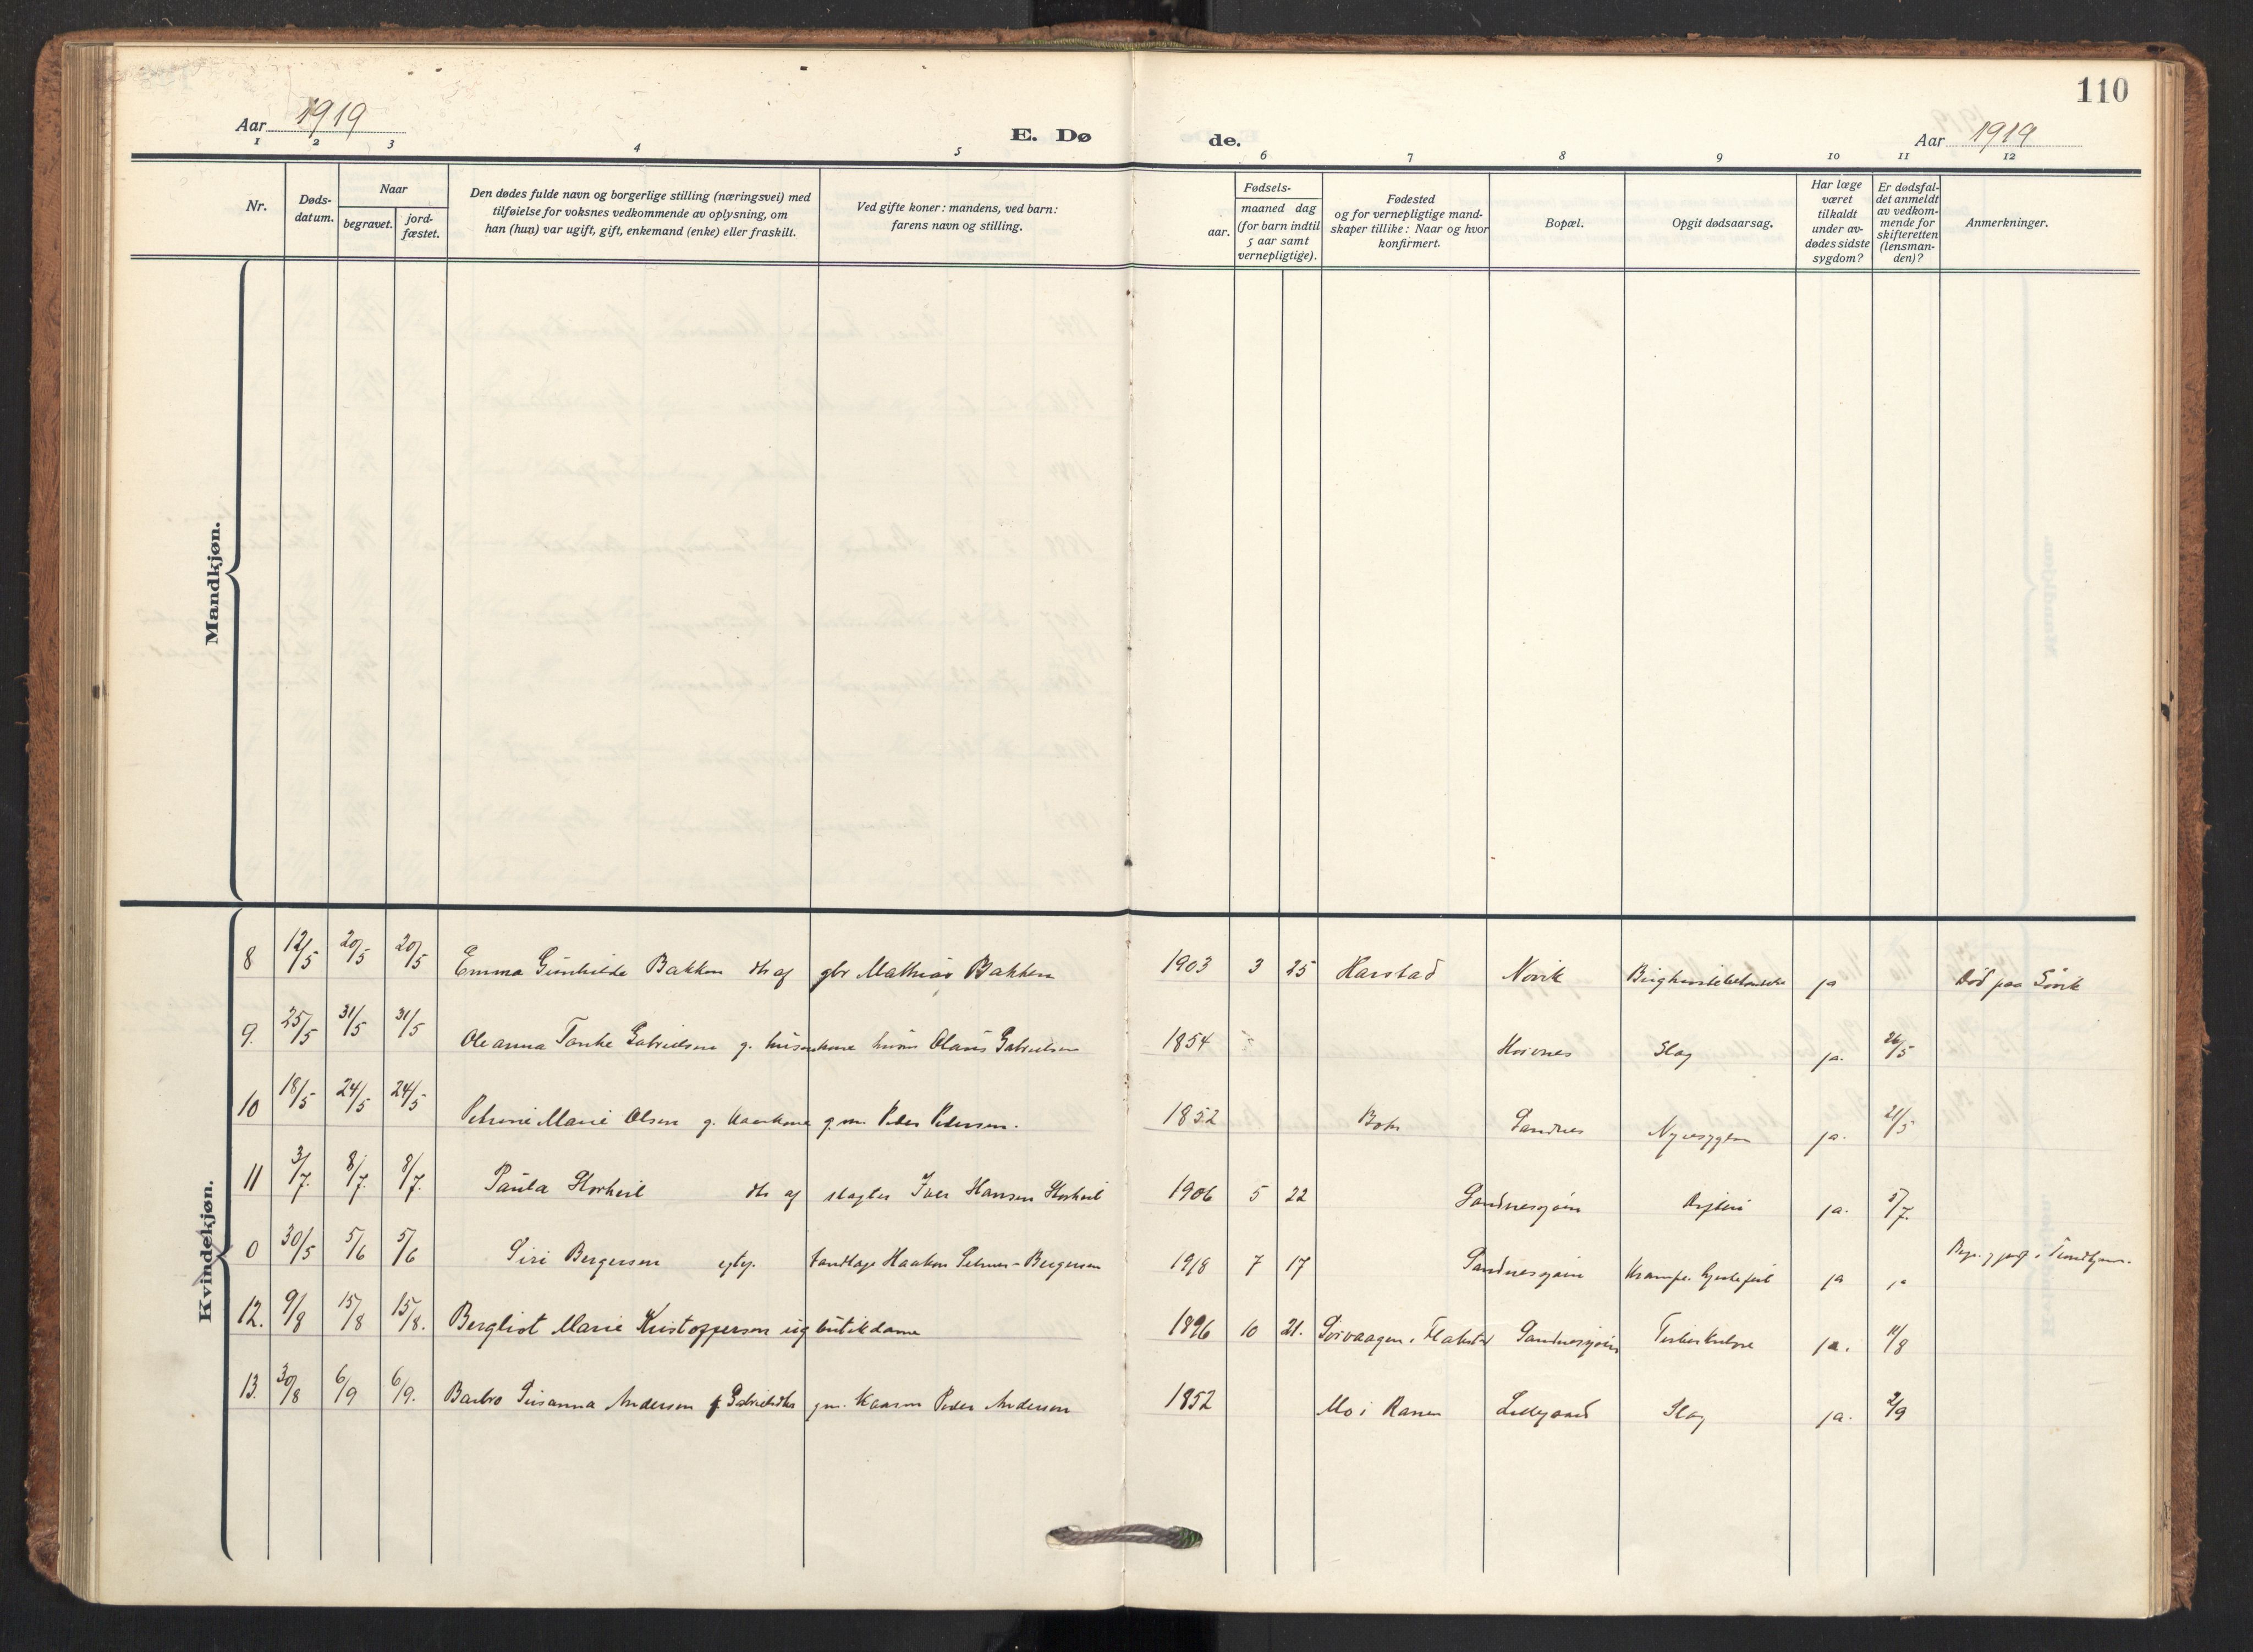 110
Aar 1919
E. Dø de.
Aar 1919
1 2 3 4 5 6 7 8 9 10 11 12
Nr.
Døds-
datum.
Naar
begravet.
jord-
fæstet.
Den dødes fulde navn og borgerlige stilling (næringsvei) med
tilføielse for voksnes vedkommende av oplysning, om
han (hun) var ugift, gift, enkemand (enke) eller fraskilt.
Ved gifte koner: mandens, ved barn:
farens navn og stilling.
Fødsels-
aar.
maaned dag
(for barn indtil
5 aar samt
vernepligtige).
Fødested
og for vernepligtige mand-
skaper tillike: Naar og hvor
konfirmert.
Bopæl.
Opgit dødsaarsag.
Har læge
været
tilkaldt
under av-
dødes sidste
sygdom?
Er dødsfal-
det anmeldt
av vedkom-
mende for
skifteretten
(lensman-
den)?
Anmerkninger.
Mandkjøn.
Kvindekjøn.
8 12/5 20/5 20/5 Emma Gunhilde Bakken dtr af gbr Mathias Bakken 1903 3 25 Harstad Novik ja Død paa Søvik
9. 25/5 31/5 31/5 Oleanna Tanke Gabrielsen g. Olaus Gabrielsen 1854 Slag ja. 26/5
10 18/5 24/5 24/5 Petrine Marie Olsen g. gm. Peder Pedersen. 1852 Sandnes ja. 21/5
11 3/7. 8/7. 8/7. Paula Storheil dtr af slagter Iver Hansen Storheil 1906 5 22 Sandnessjøen ja. 5/7.
0 30/5 5/6 5/6 Siri Bergersen tandlæge Haakon Bergersen 1918 7 17 Sandnessjøen ja
12. 9/8 15/8 15/8. Bergliot Marie Kristoffersen ug butikdame 1896 10 21. Sørvaagen i Flakstad Sandnessjøen Tuberkulose ja. 11/8
13. 30/8 6/9 6/9. Barbro Susanna Andersen f. Gabrielsdtr gm. Kaarm Peder Andersen 1852 Mo i Ranen Slag ja. 2/9